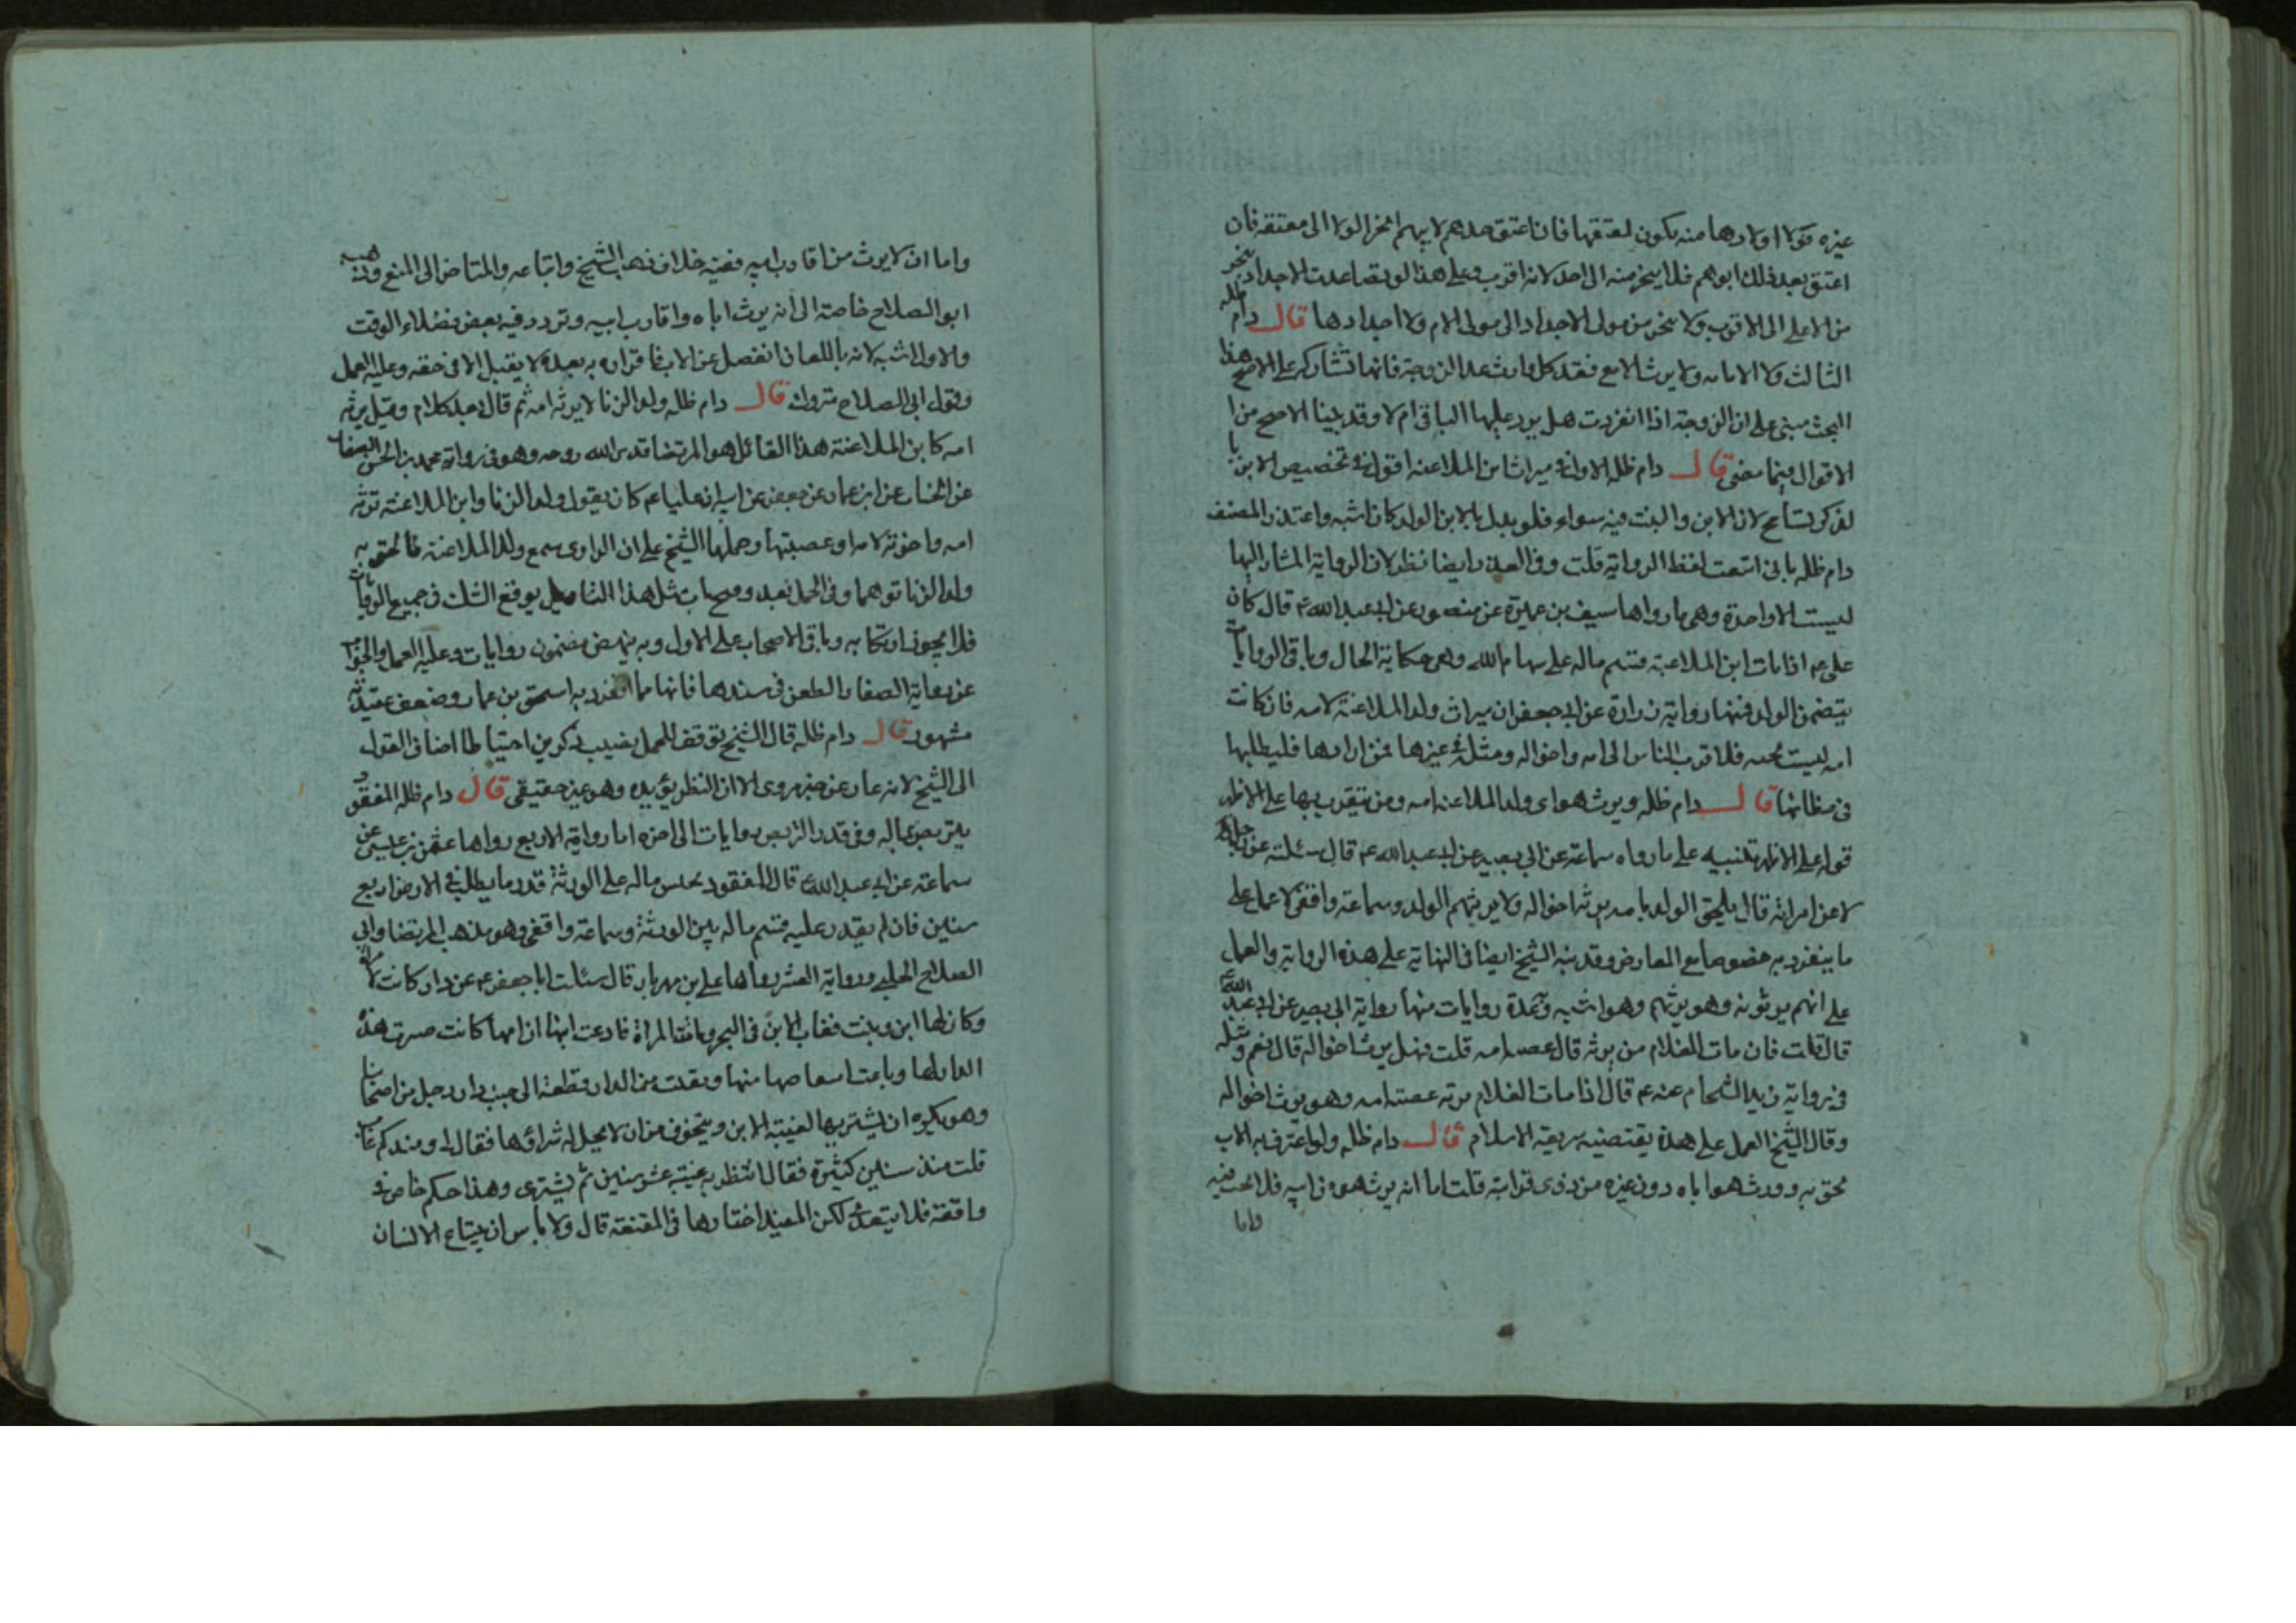 غيره فولاء اولادها منه يكون لمعتقها فان اعتق جدهم لابيهم انجر الولا الى معتقه فان
اعتق بعد ذلك ابوهم فلا ينجر منه الى احد لانه اقرب وعلى هذا لو تصاعدت الاجداد ينجر
من الاعلى الى الاقرب ولا ينجر من مولى الاجداد الى مولى الام ولا اجدادها قال دام ظله
الثالث ولا الامامه ولا يرث الا مع فقد كل وارث عدا الزوجة فانها تشاركه على الاصح هذا
البحث مبنى على ان الزوجة اذا انفردت هل يرد عليها الباقى ام لا وقد بينا الاصح من ا
الاقوال فيما مضى قال دام ظله الاول فى ميراث ابن الملاعنه اقول فى تخصيص الابن با
لذكر تسامح لان الابن والبنت فيه سواء فلو بدل بالابن الولد كان اشبه واعتذر المصنف
دام ظله بانى اتبعت لفظ الرواية قلت وفى العذر ايضا نظر لان الرواية المشار اليها
ليست الا واحدة وهى ما رواها سيف بن عميرة عن منصور عن ابى عبد الله ع قال كان
على ع اذا مات ابن الملاعنة قسم ماله على سهام الله وهى حكاية الحال وباقى الروايات
يتضمن الولد فمنها رواية زرارة عن ابى جعفر ان ميراث ولد الملاعنة لامه فان كانت
امه ليست بحيه فلاقرب الناس الى امه واخواله ومثله فى غيرها فمن ارادها فليطلبها
فى مظانها قال دام ظله ويرث هو اى ولد الملاعنه امه ومن يتقرب بها على الاظهر
قوله على الاظهر تنبيه على ما رواه سماعة عن ابى بصير عن ابى عبد الله ع قال سئلته عن رجل
لاعن امراته قال يلحق الولد بامه يرثه اخواله ولا يرثهم الولد وسماعة واقفى لا عمل على
ما ينفرد به خصوصا مع المعارض وقد نبه الشيخ ايضا فى النهاية على هذه الرواية والعمل
على انهم يرثونه وهو يرثهم وهو اشبه وبه عدة روايات منها رواية ابى بصير عن ابى عبد الله ع
قال قلت فان مات الغلام من يرثه قال عصبة امه قلت فهل يرث اخواله قال نعم ومثله
فى رواية زيد الشحام عنه ع قال اذا مات الغلام يرثه عصبة امه وهو يرث اخواله
وقال الشيخ العمل على هذه يقتضيه شريعة الاسلام قال دام ظله ولو اعترف به الاب
لحق به وورث هو اباه دون غيره من ذوى قرابة قلت اما انه يرث هو من ابيه فلا بحث فيه
واما
واما ان لا يرث من اقارب ابيه ففيه خلاف ذهب الشيخ واتباعه والمتاخر الى المنع وذهب
ابو الصلاح خاصة الى انه يرث اباه واقارب ابيه وتردد فيه بعض فضلاء الوقت
والاول اشبه لانه باللعان انفصل عن الاب فاقراره به بعده لا يقبل الا فى حقه وعليه العمل
وقول ابى الصلاح متروك قال دام ظله ولد الزنا لا يرثه امه ثم قال بعد كلام وقيل يرثه
امه كابن الملاعنة هذا القائل هو المرتضا قدس الله روحه وهو فى رواية محمد بن الحسن الصفار
عن الخشاب عن ابن عمار عن جعفر عن ابيه ان عليا ع م كان يقول ولد الزنا وابن الملاعنة ترثه
امه واخوته لامه او عصبتها وحملها الشيخ على ان الراوى سمع ولد الملاعنة فالحق به
ولد الزنا توهما وفى الحمل بعد وفتح باب مثل هذا التاويل يوقع الشك فى جميع الروايات
فلا يجوز ارتكابه وباقى الاصحاب على الاول وبه ينهض مضمون روايات وعليه العمل والجواب
عن رواية الصفار الطعن فى سندها فانها مما انفرد به اسحق بن عمار وضعف عقيدته
مشهور قال دام ظله قال الشيخ يوقف للحمل نصيب ذكرين احتياطا اضاف القول
الى الشيخ لانه عار عن خبر مروى الا ان النظر يؤيده وهو غير حقيقى قال دام ظله المفقود
يتربص بماله وفى قدر التربص روايات الى اخره اما رواية الاربع رواها عثمن بن عيسى عن
سماعة عن ابى عبد الله ع قال المفقود يحبس ماله على الورثة قدر ما يطلب فى الارض اربع
سنين فان لم يقدر عليه قسم ماله بين الورثة وسماعة واقفى وهو مذهب المرتضا وابى
الصلاح الحلبى ورواية العشر رواها على بن مهزيار قال سئلت ابا جعفر ع م عن دار كانت لامراة
وكان لها ابن وبنت فغاب الابن فى البحر وماتت المراة فادعت ابنتها ان امها كانت صيرت هذه
الدار لها وباعت اشقاصا منها وبقيت من الدار قطعة الى جنب دار رجل من اصحابنا
وهو يكره ان يشتريها لغيبة الابن ويتخوف من ان لا يحل له شراؤها فقال لى ومنذ كم غاب
قلت منذ سنين كثيرة فقال انتظر به غيبة عشر سنين ثم يشترى وهذا حكم خاص فى
واقعة فلا يتعدى لكن المفيد اختارها فى المقنعة قال ولا باس ان يبتاع الانسان